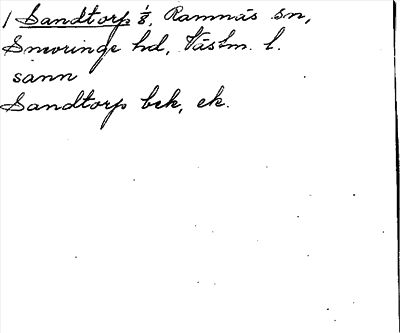 1 Sandtorp 1/8, Ramnäs sn,
Snevringe hd, Västm. l.
sann
Sandtorp bek, ek.